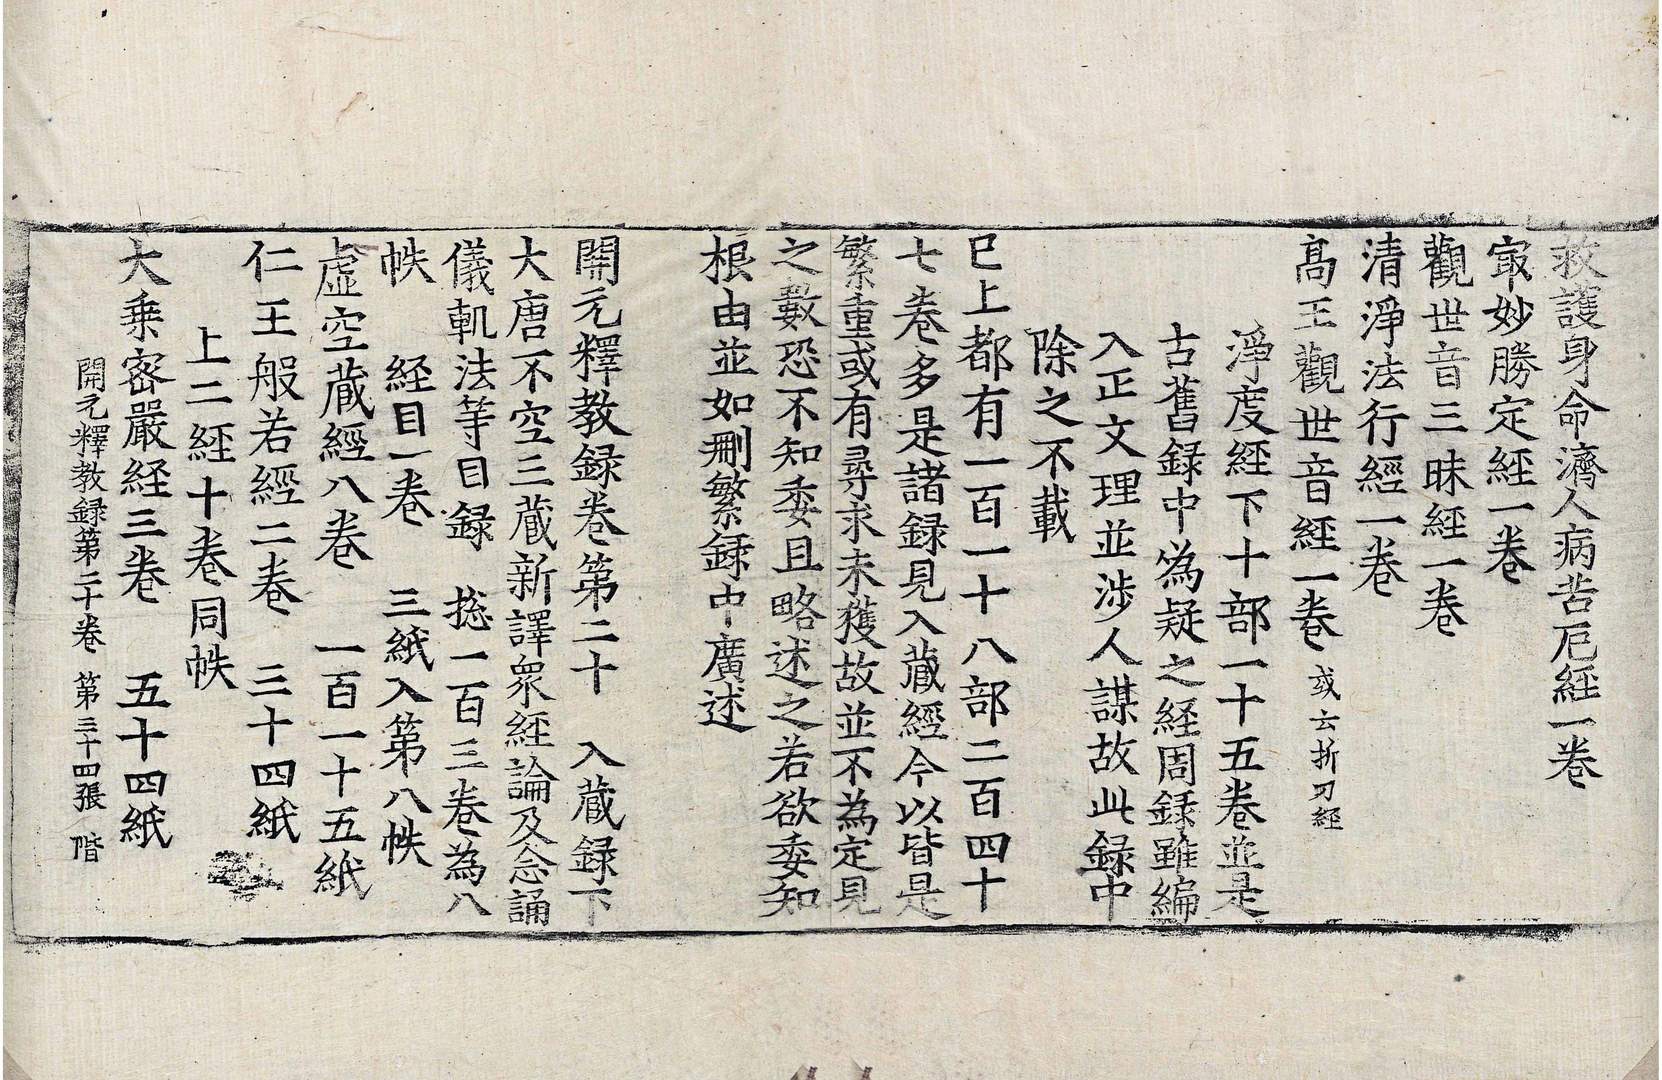 救護身命濟人病苦厄経一卷
㝡妙勝定経一卷
觀世音三昧経一卷
清淨法行經一卷
髙王觀世音經一卷 或云折刀經
淨度經下十部一十五卷並是
古舊録中僞疑之経周録雖編
入正文理並涉人謀故此録中
除之不載
已上都有一百一十八部二百四十
七卷多是諸録見入藏經今以皆是
繁重或有尋求未獲故並不為定見
之數恐不知委且略述之若欲委知
根由並如刪繁録中廣述
開元釋教録卷第二十 入藏録下
大唐不空三藏新譯衆経論及念誦
儀軌法等目録 揔一百三卷為八
帙 経目一卷 三紙入第八帙
虛空藏經八卷 一百一十五紙
仁王般若經二卷 三十四紙
上二経十卷同帙
大乗密嚴経三卷 五十四紙
開元釋教録第二十卷 第三十四張 階